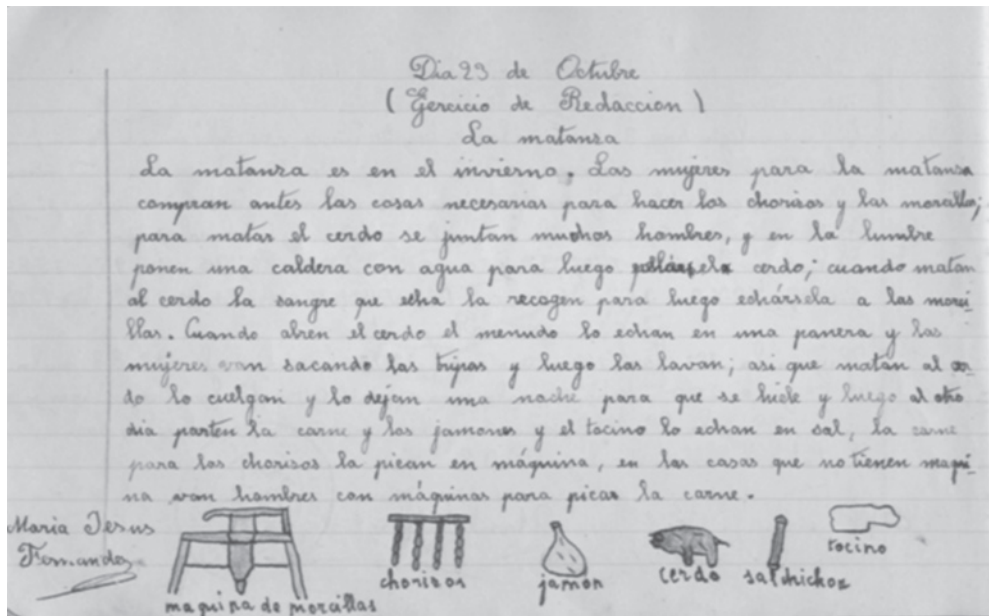 Dia 23 de Octubre
(Gercicio de Redaccion)
La matansa
La matansa es en el invierno. Las mujeres para la matansa
compran antes las cosas necesarias para hacer los chorisos y las morcillas;
para matar el cerdo se juntan muchos hombres, y en la lumbre
ponen una caldera con agua para luego cerdo; cuando matan
al cerdo la sangre que echa la recogen para luego echársela a las morci-
llas. Cuando abren el cerdo el menudo lo echan en una panera y las
mujeres van sacando las tripas y luego las lavan; asi que matan al cer-
do lo cuelgan y lo dejan una noche para que se hiele y luego al otro
dia parten la carne y los jamones y el tocino lo echan en sal, la carne
para los chorisos la pican en máquina, en las casas que no tienen maqui-
na van hombres con máquinas para picar la carne.
Maria Jesus
Fernando
maquina de morcillas
chorisos
jamon
cerdo
salchichon
tocino